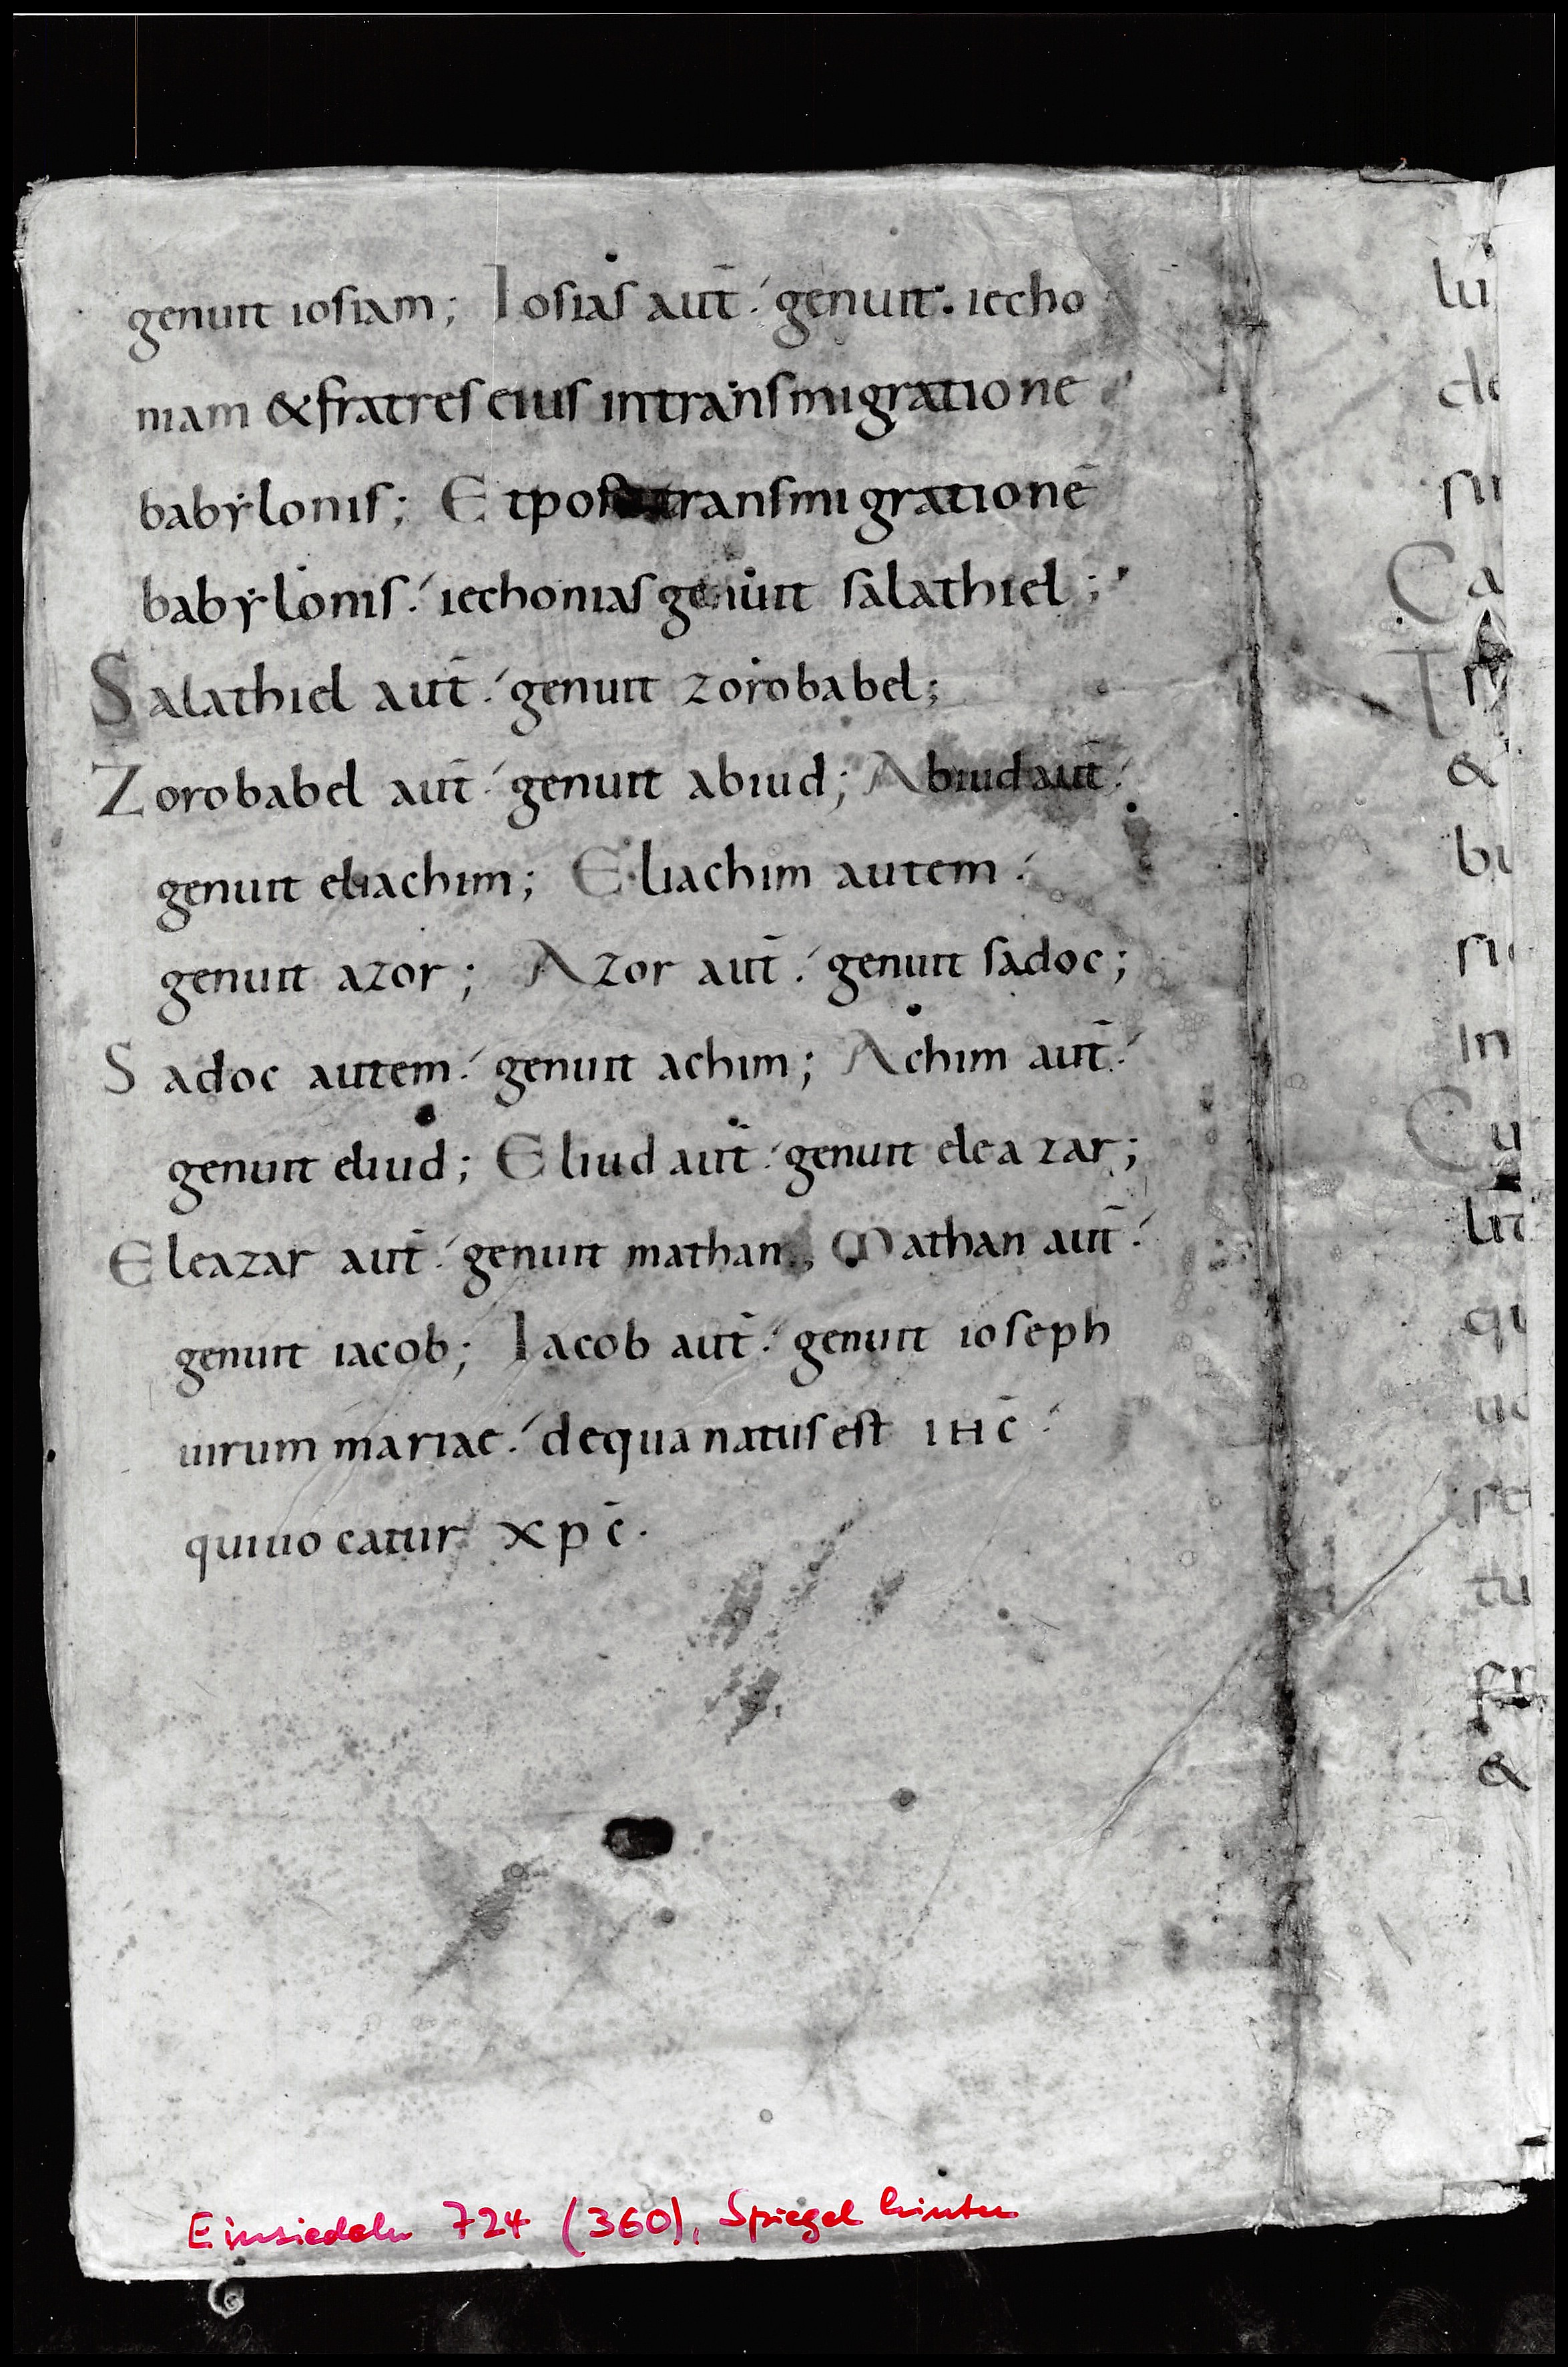 genuit iosiam; Iosias aut̄ genuit. iecho
niam & fratres eius in transmigratione
babylonis; Et post transmigrationē
babylonis. iechonias genuit salathiel;
Salathiel aut̄. genuit zorobabel;
Zorobabel aut̄. genuit abiud; Abiud aut̄.
genuit eliachim; Eliachim autem.
genuit azor; Azor aut̄. genuit sadoc;
Sadoc autem. genuit achim; Achim aut̄.
genuit eliud; Eliud aut̄. genuit eleazar;
Eleazar aut̄. genuit mathan; Mathan aut̄.
genuit iacob; Iacob aut̄. genuit ioseph
uirum mariae. de qua natus est ihc̄.
qui uocatur xpc̄.
lu
de
su
Ca
&
bu
in
Cu
lit
qu
tu
&
Einsiedeln 724 (360), Spiegel hinten